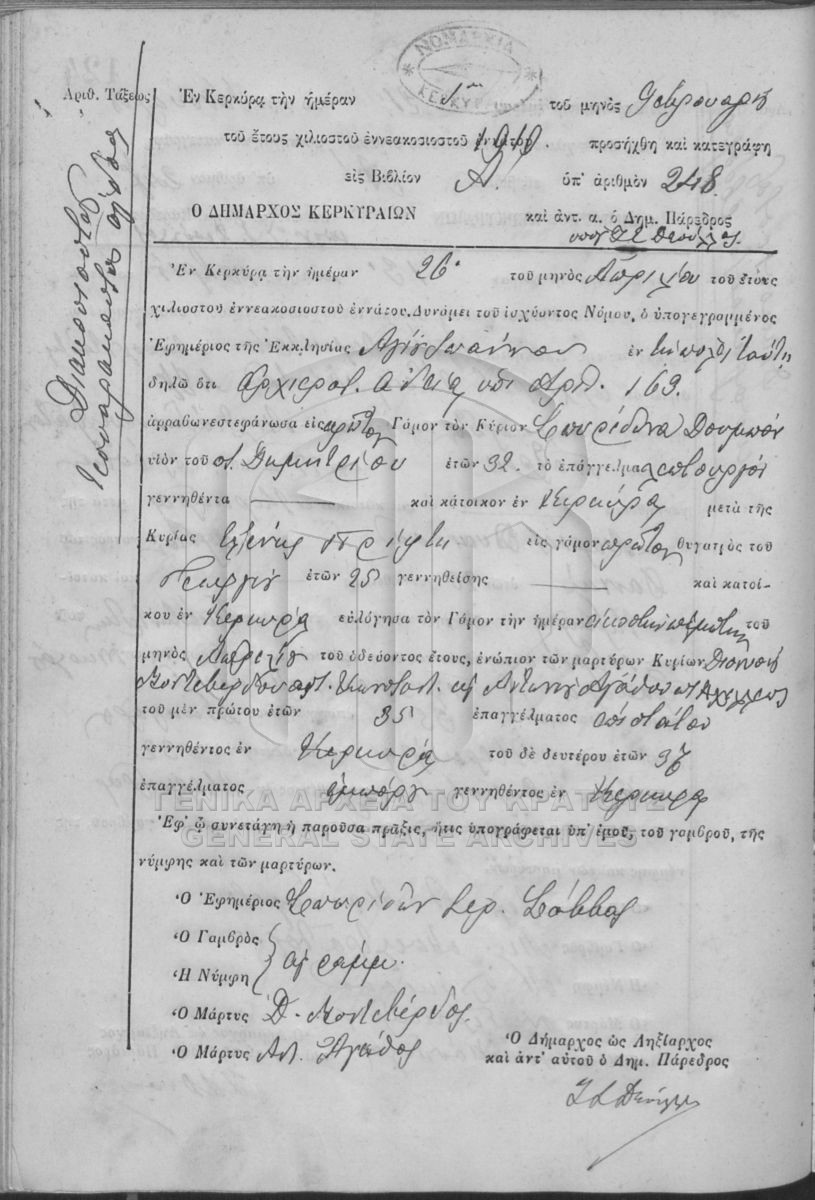 ΝΟΜΑΡΧΙΑ
ΚΕΡΚΥΡ
Ἀριθ. Τάξεως
Διακοσιοστὸν
Ἐν Κερκύρᾳ τὴν ἡμέραν 1ην τοῦ μηνὸς Φεβρουαρίου
τοῦ ἔτους χιλιοστοῦ ἐννεακοσιοστοῦ 1910. προσήχθη καὶ κατεγράφη
εἰς Βιβλίον Α. ὑπ' ἀριθμὸν 248
Ο ΔΗΜΑΡΧΟΣ ΚΕΡΚΥΡΑΙΩΝ καὶ ἀντ. α. ὁ Δημ. Πάρεδρος
Ἐν Κερκύρᾳ τὴν ἡμέραν 26 τοῦ μηνὸς Ἀπριλίου τοῦ ἔτους
χιλιοστοῦ ἐννεακοσιοστοῦ ἐννάτου. Δυνάμει τοῦ ἰσχύοντος Νόμου, ὁ ὑπογεγραμμένος
Ἐφημέριος τῆς Ἐκκλησίας Ἁγίου Ἰωάννου ἐν τῇ πόλει ταύτῃ
δηλῶ ὅτι ἀρχιερατ. ἀδείᾳ ὑπ' ἀριθ. 169.
ἀρραβωνεστεφάνωσα εἰς πρῶτον Γάμον τὸν Κύριον Σπυρίδωνα
υἱὸν τοῦ π. Δημητρίου ἐτῶν 32. τὸ ἐπάγγελμα λεπτουργὸν
γεννηθέντα —— καὶ κάτοικον ἐν Κερκύρᾳ μετὰ τῆς
Κυρίας Ἑλένης Πρίφτη εἰς γάμον πρῶτον θυγατρὸς τοῦ
Γεωργίου ἐτῶν 25 γεννηθείσης —— καὶ κατοί-
κου ἐν Κερκύρᾳ εὐλόγησα τὸν Γάμον τὴν ἡμέραν εἰκοστὴν πέμπτην τοῦ
μηνὸς Ἀπριλίου τοῦ ὁδεύοντος ἔτους, ἐνώπιον τῶν μαρτύρων Κυρίων Διονυσίου
Μοντεβέρδου Κωνσταντ. καὶ Ἀντωνίου Ἀγάθου
τοῦ μὲν πρώτου ἐτῶν 35 ἐπαγγέλματος ἐπιστάτου
γεννηθέντος ἐν Κερκύρᾳ τοῦ δὲ δευτέρου ἐτῶν 36
ἐπαγγέλματος ἐμπόρου γεννηθέντος ἐν Κερκύρᾳ
ΓΕΝΙΚΑ ΑΡΧΕΙΑ ΤΟΥ ΚΡΑΤΟΥΣ
GENERAL STATE ARCHIVES
Ἐφ' ᾧ συνετάγη ἡ παροῦσα πρᾶξις, ἥτις ὑπογράφεται ὑπ' ἐμοῦ, τοῦ γαμβροῦ, τῆς
νύμφης καὶ τῶν μαρτύρων.
Ὁ Ἐφημέριος Σπυρίδων Ἱερ. Βάββας
Ὁ Γαμβρὸς
ἀγράμμ.
Ἡ Νύμφη
Ὁ Μάρτυς Δ. Μοντεβέρδος
Ὁ Μάρτυς Ἀντ. Ἀγάθος
Ὁ Δήμαρχος ὡς Ληξίαρχος
καὶ ἀντ' αὐτοῦ ὁ Δημ. Πάρεδρος